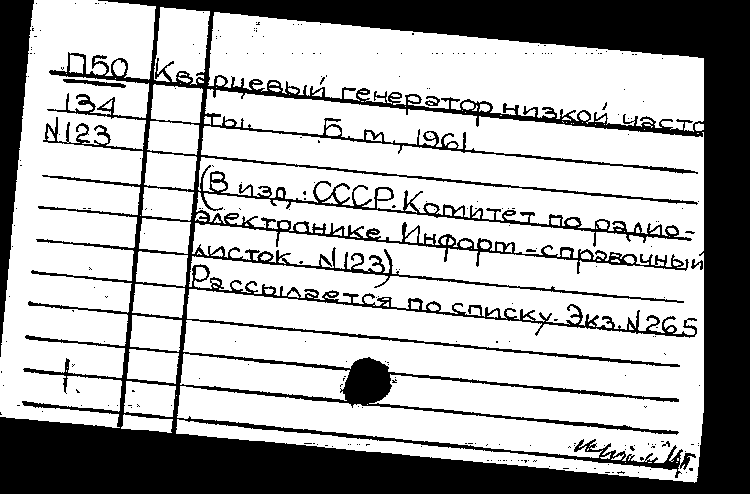 П50 Кварцевый генератор низкой часто
134 ты. Б. м., 1961.
N123
(В изд.: СССР. Комитет по радио-
электронике. Информ.-справочный
листок. N123).
Рассылается по списку. Экз. N265
1.